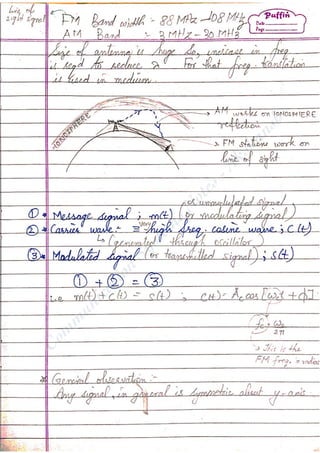 Line of
sight signal
Puffin
Date
Page
FM Band width - 88 MHz - 108 MHz
AM Band = 3 MHz - 30 MHz
Size of antenna is huge So, increase in freq.
is reqd to reduce λ For that freq. translation
is used in medium.
IONOSPHERE
A
→ AM works on IONOSPHERE
reflection
→ FM stations work on
line of sight
or unmodulated signal
① • Message signal ; m(t) (or modulating signal)
② • Carrier wave - very high freq. cosine wave ; C(t)
↳ (generated through oscillator)
③ • Modulated signal (or transmitted signal) ; s(t)
① + ② = ③
i.e. m(t) + c(t) = s(t) ; c(t) = Ac cos [ωct + ϕ]
fc = ωc
2π
→ This is the
FM freq. in radios
* General observation :-
Any signal, in general is symmetric about y-axis